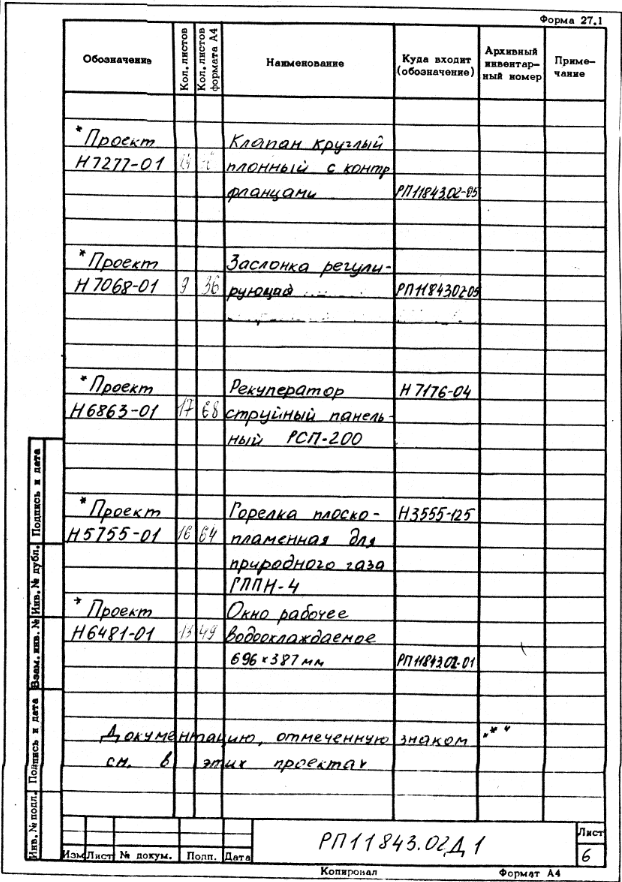 Форма 27.1
Обозначение Кол. листов Кол. листов формата А4 Наименование Куда входит (обозначение) Архивный инвентар-ный номер Приме-чание
* Проект Клапан круглый
Н7277-01 плонный с контр
фланцами РП11843.02-05
* Проект Заслонка регули-
Н7068-01 9 36 рующая РП11843.02-05
* Проект Рекуператор Н7176-04
Н6863-01 17 68 струйный панель-
ный РСП-200
* Проект Горелка плоско- Н3555-125
Н5755-01 16 64 пламенная для
природного газа
ГППН-4
* Проект Окно рабочее
Н6481-01 13 49 водоохлаждаемое
696×387мм РП11843.02-01
Документацию, отмеченную знаком „*“
см. в этих проектах
Инв. № подл. Подпись и дата Взам. инв. № Инв. № дубл. Подпись и дата
РП11843.02Д1
Лист
6
Изм Лист № докум. Подп. Дата
Копировал Формат А4